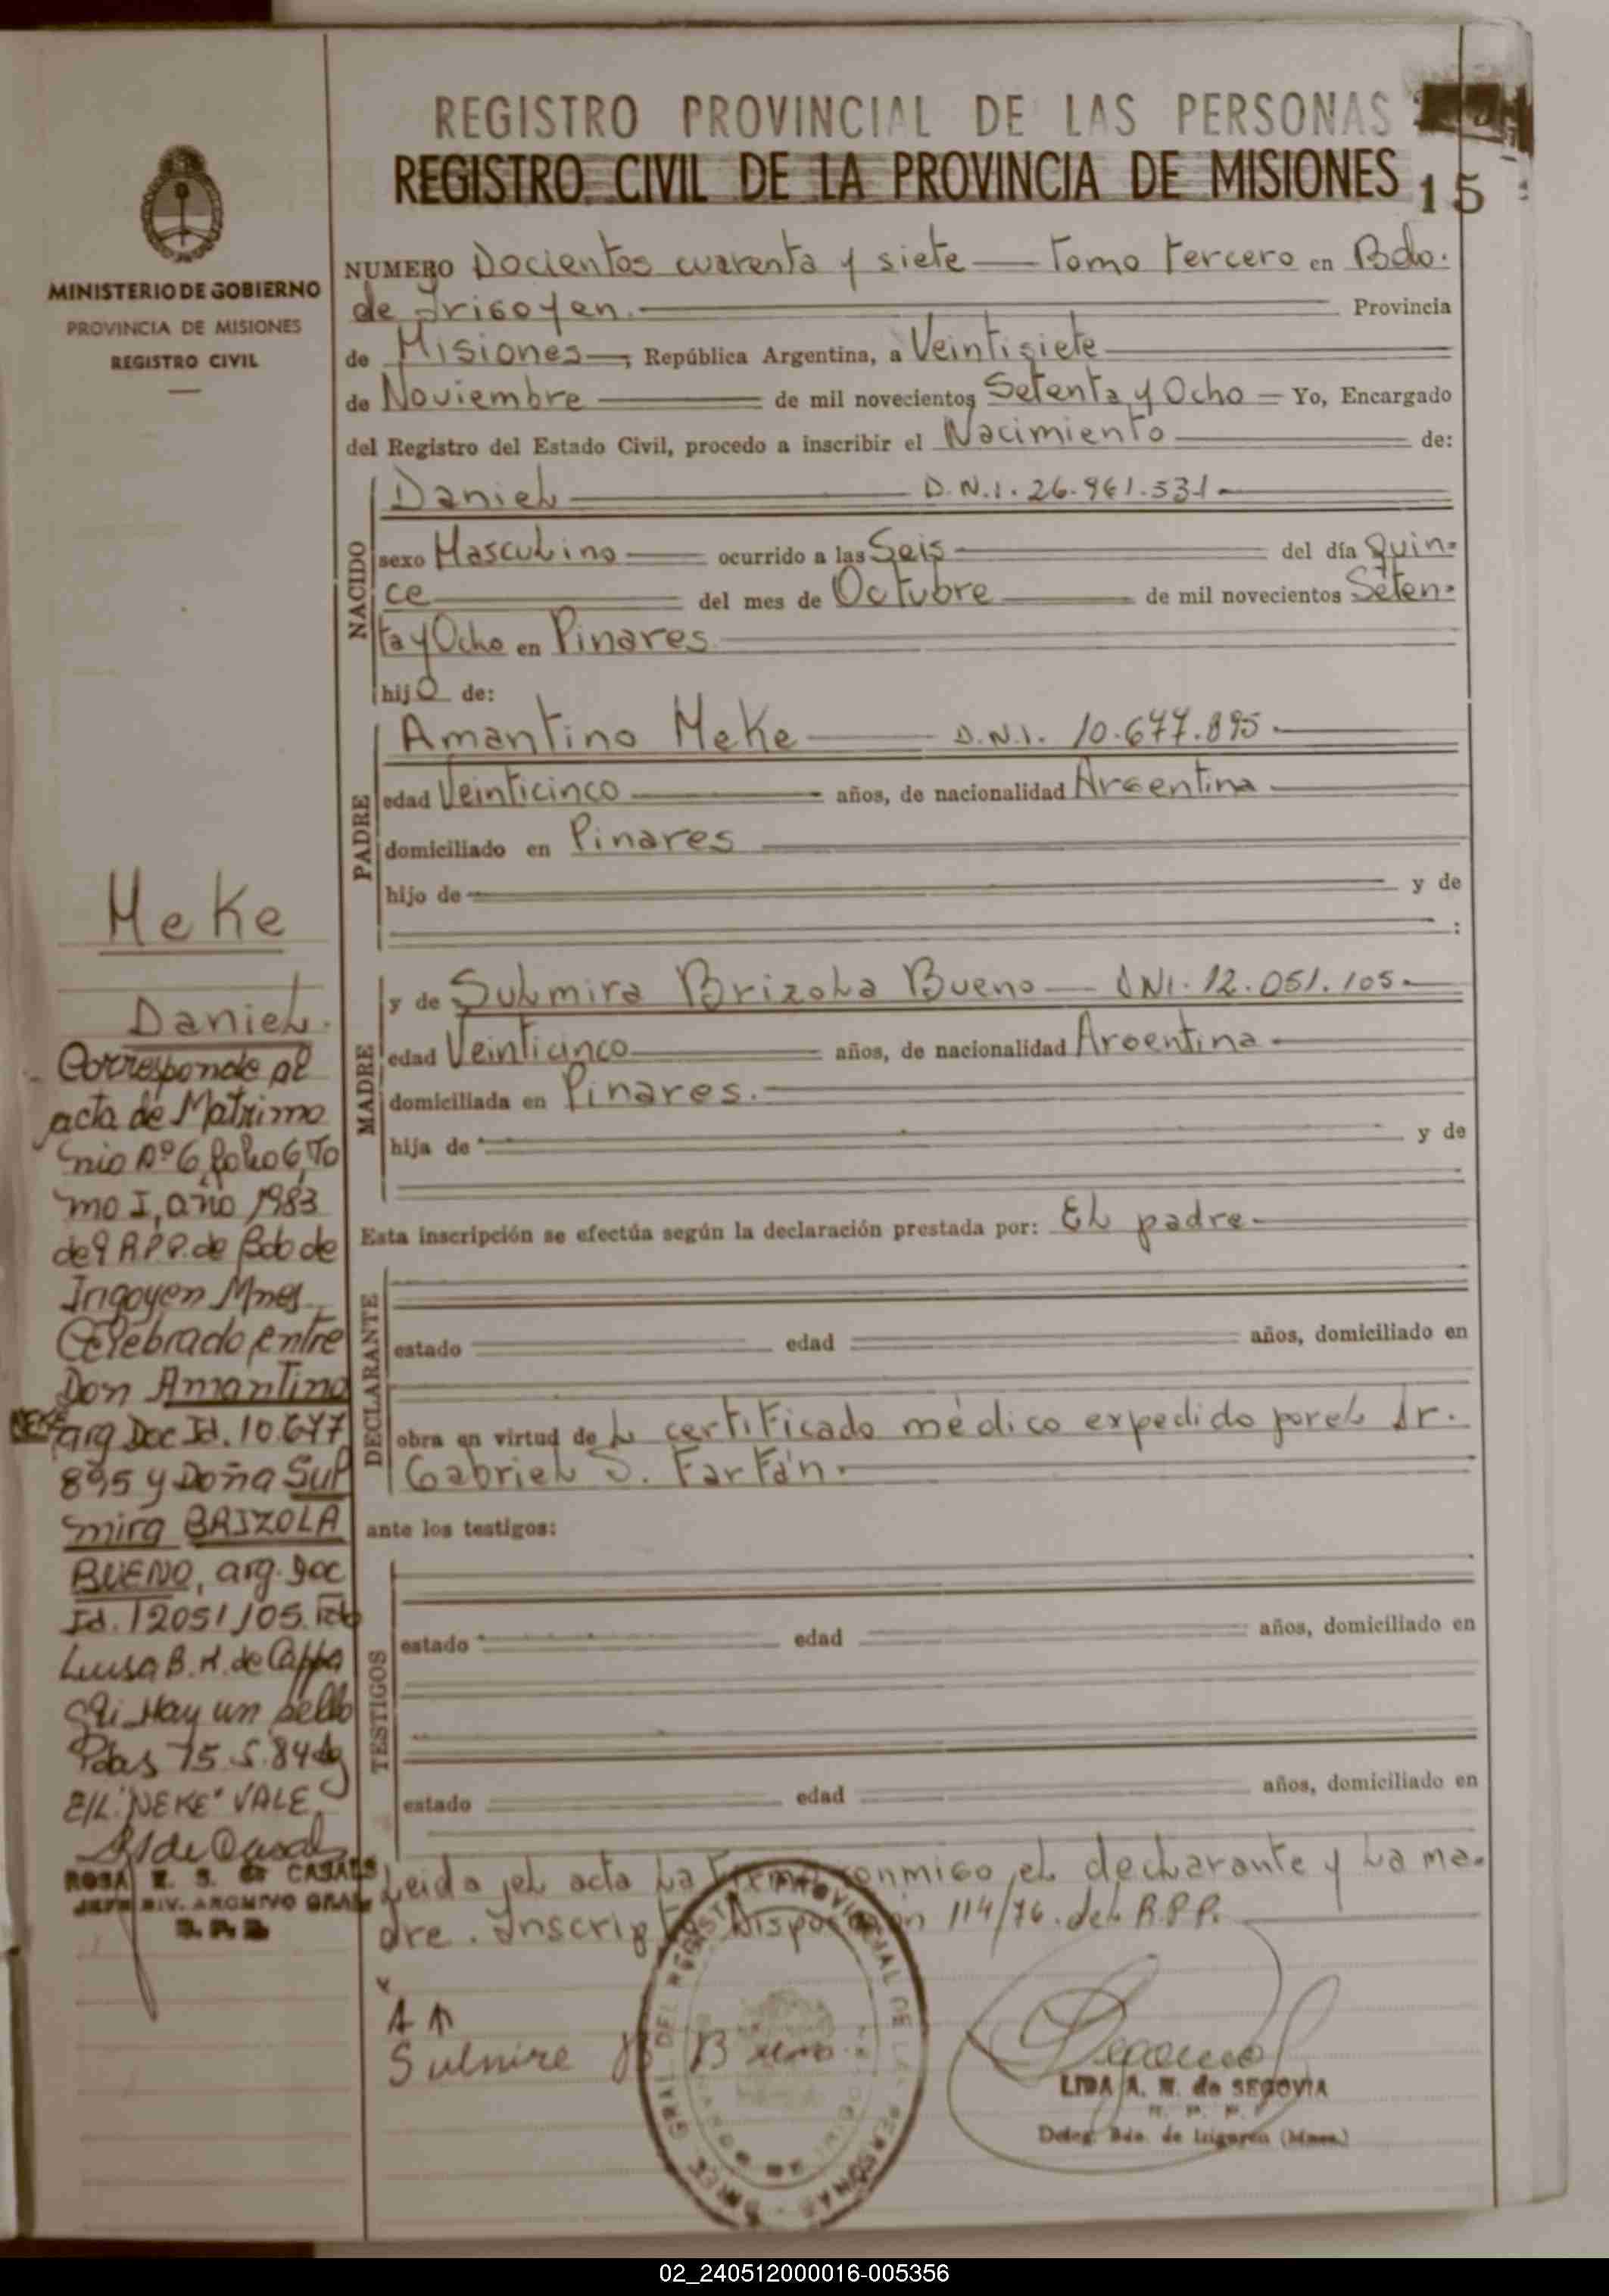 REGISTRO PROVINCIAL DE LAS PERSONAS
REGISTRO CIVIL DE LA PROVINCIA DE MISIONES 15
MINISTERIO DE GOBIERNO
PROVINCIA DE MISIONES
REGISTRO CIVIL
NUMERO Docientos cuarenta y siete — Tomo tercero en Bdo.
de Irigoyen. Provincia
de Misiones, República Argentina, a Veintisiete
de Noviembre de mil novecientos Setenta y Ocho — Yo, Encargado
del Registro del Estado Civil, procedo a inscribir el Nacimiento de:
NACIDO
Daniel D.N.I. 26.961.531
sexo Masculino ocurrido a las Seis del día Quin-
ce del mes de Octubre de mil novecientos Seten-
ta y Ocho en Pinares
hijo de:
PADRE
Amantino Meke D.N.I. 10.677.895
edad Veinticinco años, de nacionalidad Argentina
domiciliado en Pinares
hijo de y de
:
MADRE
y de Sulmira Brizola Bueno — DNI. 12.051.105
edad Veinticinco años, de nacionalidad Argentina
domiciliada en Pinares.
hija de y de
Esta inscripción se efectúa según la declaración prestada por: El padre
DECLARANTE
estado edad años, domiciliado en
obra en virtud de L certificado médico expedido por el Dr.
Gabriel S. Farfán.
ante los testigos:
TESTIGOS
estado edad años, domiciliado en
estado edad años, domiciliado en
Leida el acta la firma conmigo el declarante y la ma-
dre. Inscripta Disposición 114/76. del R.P.P.
A M
Sulmire B Bueno
LIDA A. M. de SEGOVIA
Deleg. Bdo. de Irigoyen (Mnes.)
Meke
Daniel.
Corresponde al
acta de Matrimo
nio Nº 6 folio 6, To
mo I, año 1983
del R.P.P. de Bdo de
Irigoyen Mnes
Celebrado entre
Don Amantino
MEKE arg Doc Id. 10.677
895 y Doña Sul
mira BRIZOLA
BUENO, arg. Doc
Id. 12051105. Fdo
Luisa B. K. de Cappa
Hay un sello
Pdas 15.5.84
E/L "NEKE" VALE
ROSA E. S. de CASALS
JEFE DIV. ARCHIVO GRAL
02_240512000016-005356